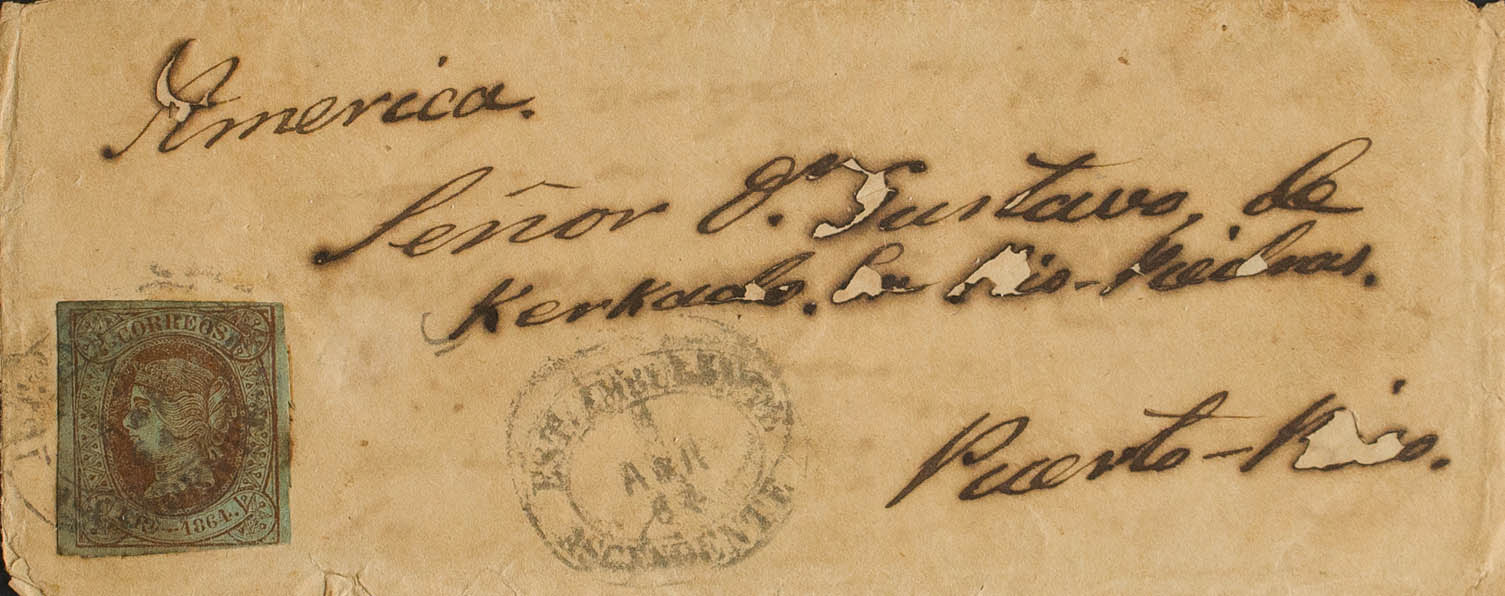 America.
Señor Dn. Gustavo, de
Kerkado. En Rio-Piedras.
Puerto-Rico.
CORREOS
1864.
EST. AMBULANTE
ABR
64
ASCENDENTE.